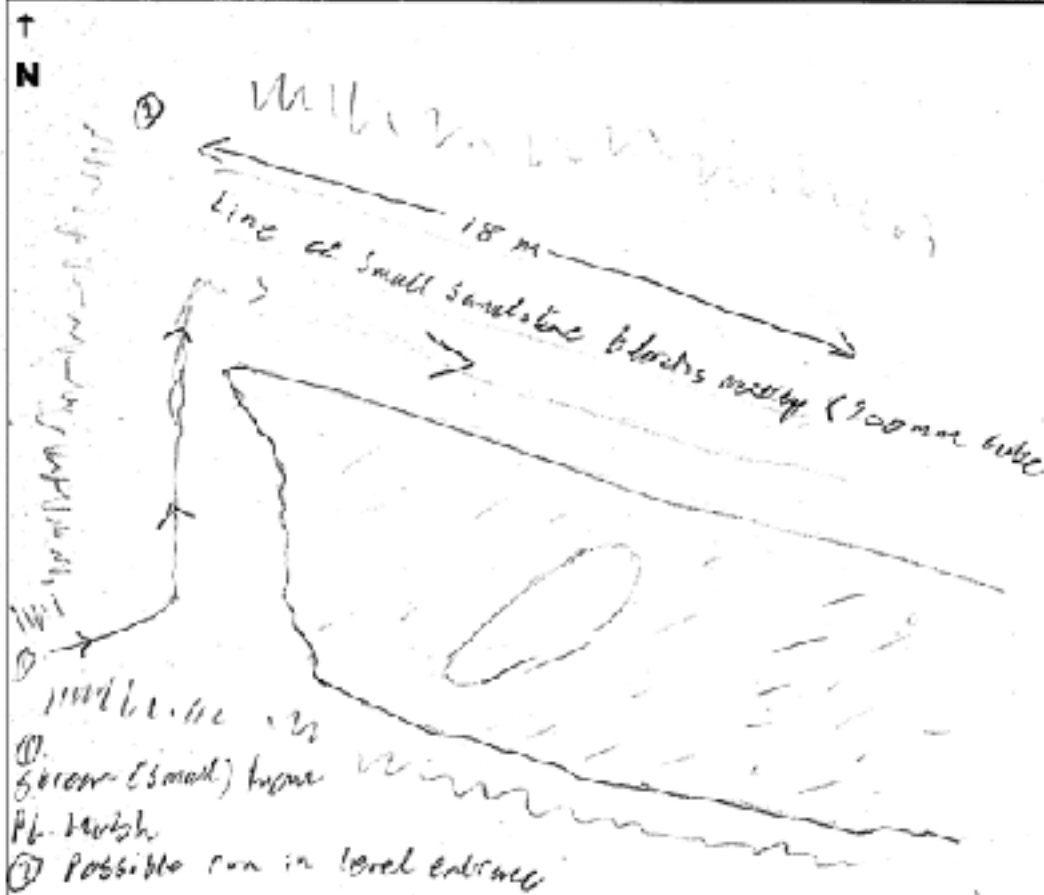 N
②
18 m
Line of small sandstone blocks mostly (900mm cube
①
①
(small) from
② Possible run in level entrance